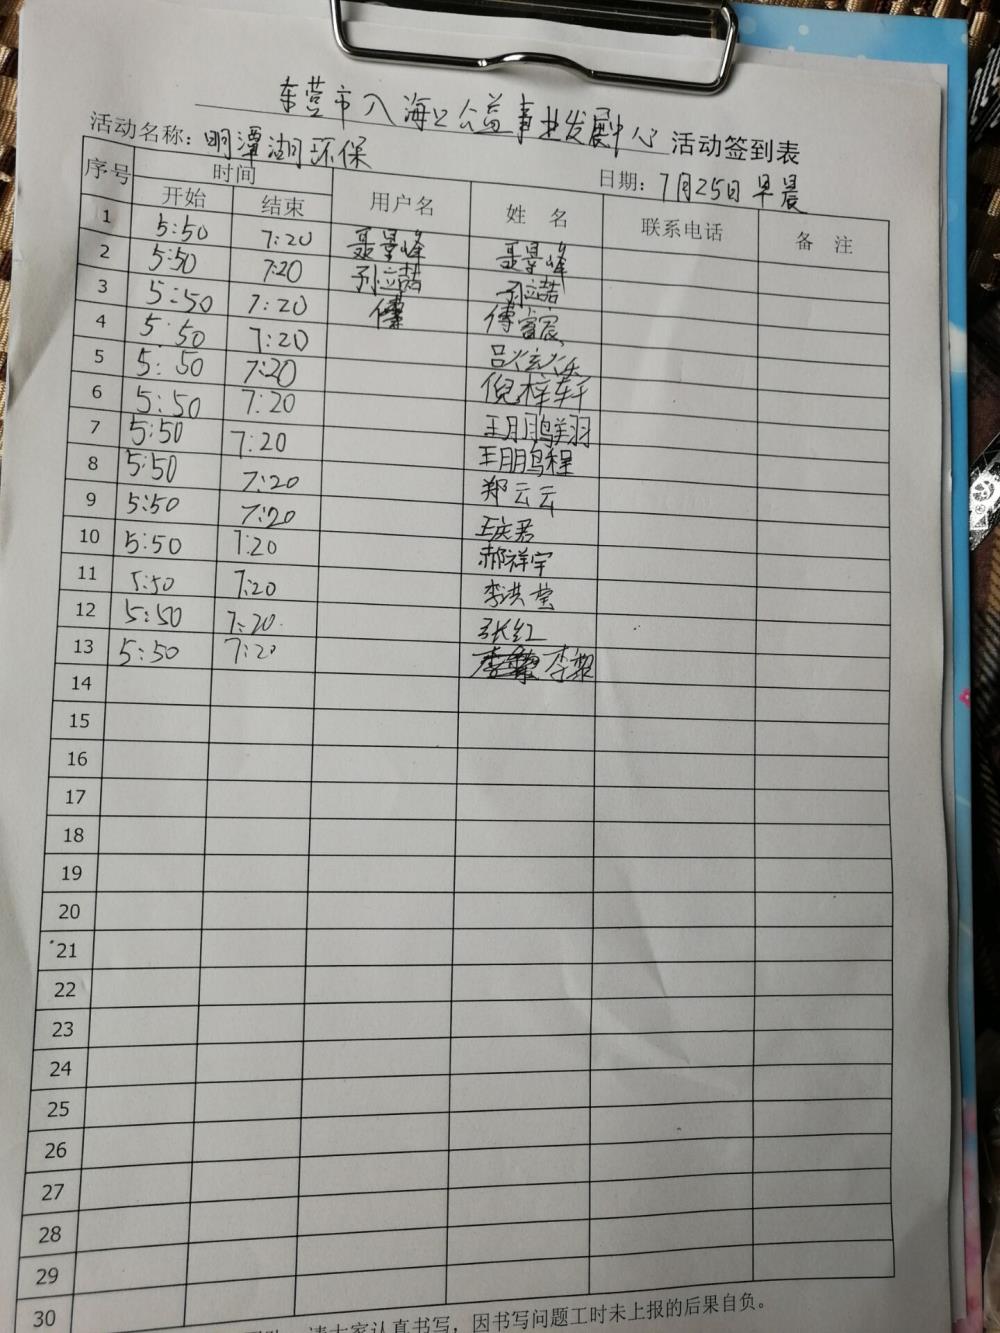 东营市入海口公益事业发展中心 活动签到表
活动名称：明潭湖环保 日期：7月25日早晨
序号 时间 用户名 姓名 联系电话 备注
开始 结束
1 5:50 7:20 聂景峰 聂景峰
2 5:50 7:20 孙立喆 孙立喆
3 5:50 7:20 傅 傅睿宸
4 5:50 7:20 吕
5 5:50 7:20 倪梓轩
6 5:50 7:20 王鹏翔
7 5:50 7:20 王鹏程
8 5:50 7:20 郑云云
9 5:50 7:20 王庆君
10 5:50 7:20 郝祥宇
11 5:50 7:20 李洪莹
12 5:50 7:20 张红
13 5:50 7:20 李
14
15
16
17
18
19
20
21
22
23
24
25
26
27
28
29
30
请大家认真书写，因书写问题工时未上报的后果自负。